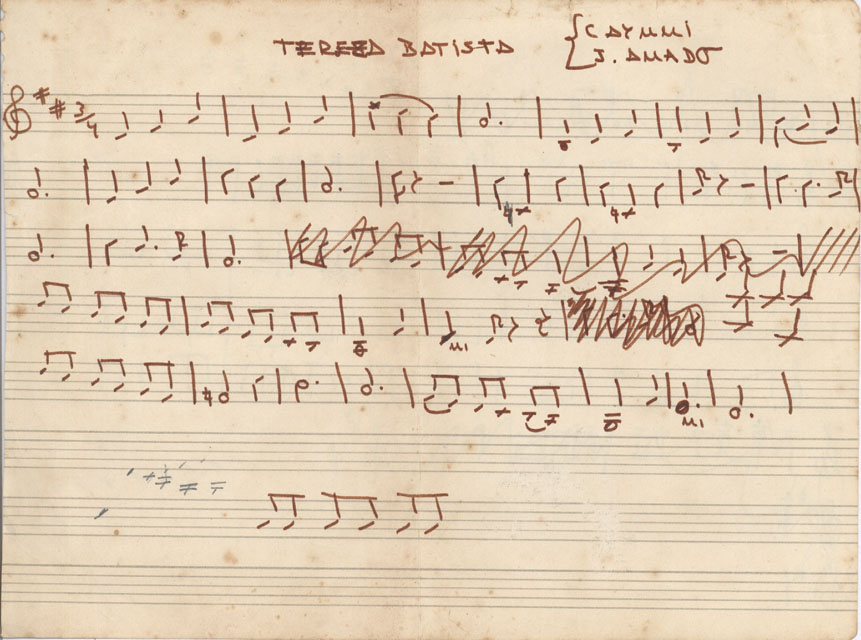 TEREZA BATISTA
CAYMMI
J. AMADO
3/4
MI
MI